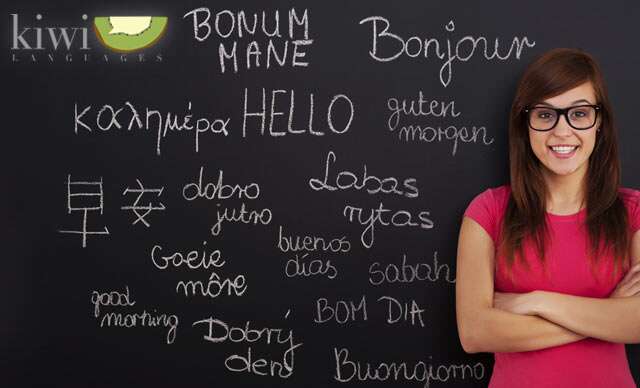 kiwi
LANGUAGES
BONUM
MANE
Bonjour
καλημέρα
HELLO
guten
morgen
早安
dobro
jutro
Labas
rytas
Goeie
môre
buenos
días
sabah
good
morning
Dobrý
den
BOM DIA
Buongiorno